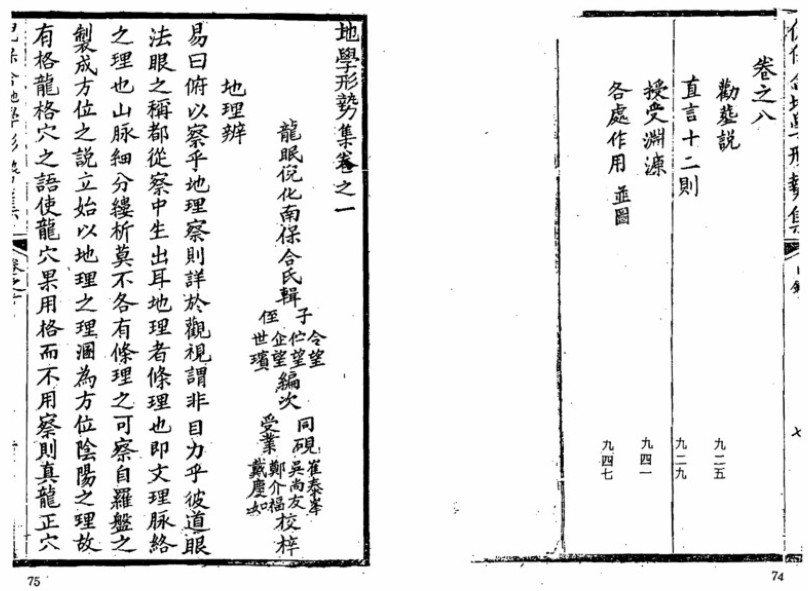 卷之八
勸塟說 九二五
直言十二則 九二九
授受淵源 九四一
各處作用 並圖 九四七
七
74
地學形勢集卷之一
龍眠倪化南保合氏輯 子 令望 伫望 侄 企望 世璸 編次 同硯 崔泰峯 吳尚友 受業 鄭介福 戴慶如 校梓
地理辨
易曰俯以察乎地理察則詳於觀視謂非目力乎彼道眼
法眼之稱都從察中生出耳地理者條理也即文理脈絡
之理也山脉細分縷析莫不各有條理之可察自羅盤之
製成方位之說立始以地理之理溷為方位陰陽之理故
有格龍格穴之語使龍穴果用格而不用察則真龍正穴
75